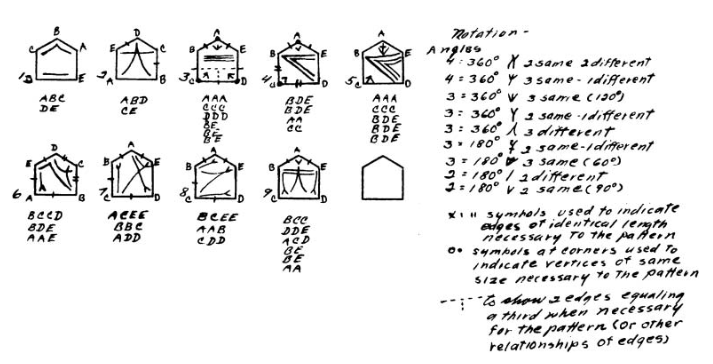 Notation -
Angles
4 = 360° X 2 same 2 different
4 = 360° Y 3 same - 1 different
3 = 360° Y 3 same (120°)
3 = 360° Y 2 same - 1 different
3 = 360° 3 different
3 = 180° 2 same - 1 different
3 = 180° 3 same (60°)
2 = 180° / 2 different
2 = 180° V 2 same (90°)
symbols used to indicate
edges of identical length
necessary to the pattern
symbols at corners used to
indicate vertices of same
size necessary to the pattern
to show 2 edges equaling
a third when necessary
for the pattern (or other
relationships of edges)
C B A
1. D E
ABC
DE
D
E C
2 A B
ABD
CE
A
B E
3 C D
AAA
CCC
DDD
BE
BE
BE
A
B E
4 C D
BDE
BDE
AA
CC
A
B E
5 C D
AAA
CCC
BDE
BDE
BDE
D
E C
6 A B
BCCD
BDE
AAE
A
B E
7 C D
ACEE
BBC
ADD
A
B E
8 C D
BCEE
AAB
CDD
A
B E
9 C D
BCC
DDE
ACD
BE
BE
AA